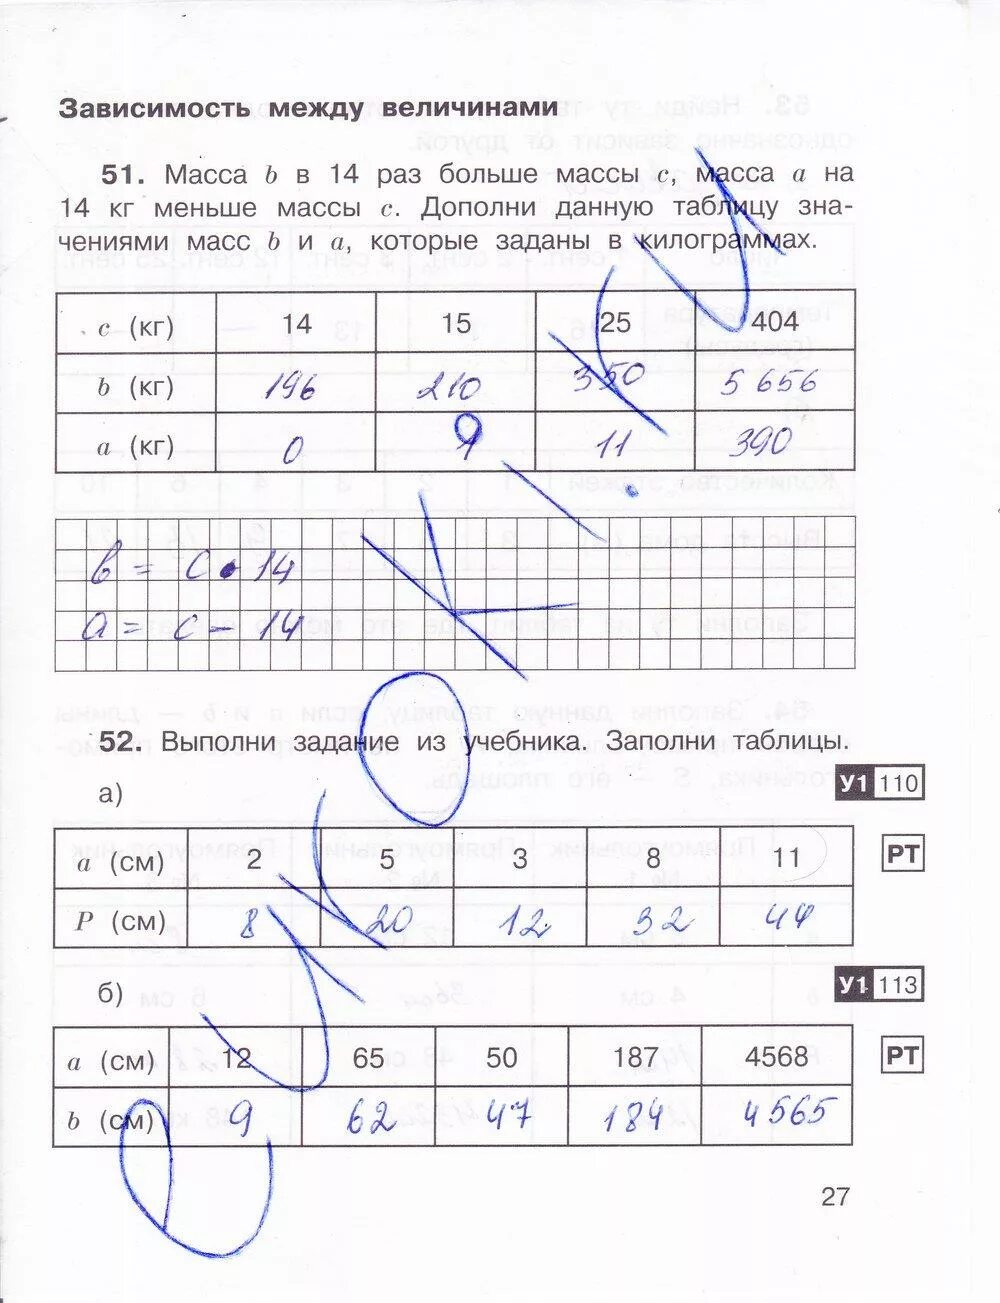 Зависимость между величинами
51. Масса b в 14 раз больше массы c, масса a на
14 кг меньше массы c. Дополни данную таблицу зна-
чениями масс b и a, которые заданы в килограммах.
c (кг) 14 15 25 404
b (кг) 196 210 350 5 656
a (кг) 0 1 11 390
в = с • 14
а = с - 14
52. Выполни задание из учебника. Заполни таблицы.
а) У1 110
a (см) 2 5 3 8 11 РТ
P (см) 8 20 12 32 44
б) У1 113
a (см) 12 65 50 187 4568 РТ
b (см) 9 62 47 184 4565
27